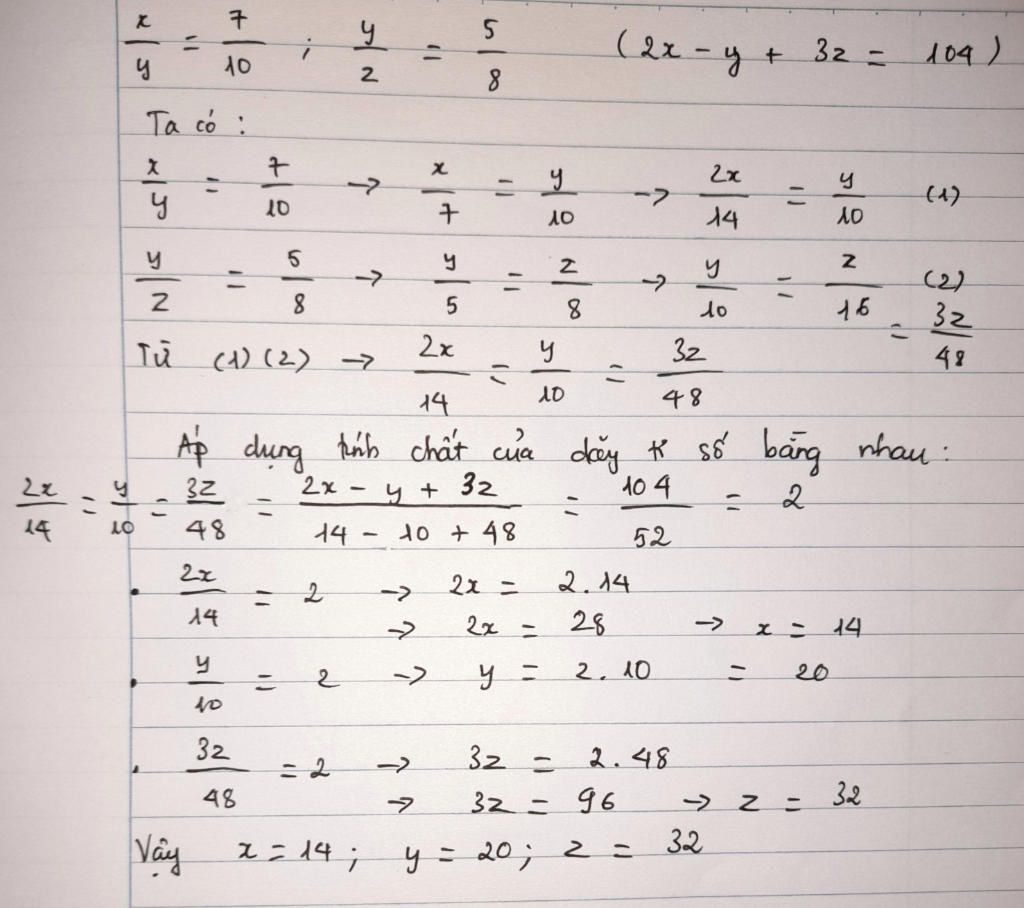 x/y = 7/10 ; y/z = 5/8 (2x - y + 3z = 104)
Ta có :
x/y = 7/10 → x/7 = y/10 → 2x/14 = y/10 (1)
y/z = 5/8 → y/5 = z/8 → y/10 = z/16 (2)
= 3z/48
Từ (1) (2) → 2x/14 = y/10 = 3z/48
Áp dụng tính chất của dãy tỉ số bằng nhau :
2x/14 = y/10 = 3z/48 = (2x - y + 3z)/(14 - 10 + 48) = 104/52 = 2
• 2x/14 = 2 → 2x = 2.14
→ 2x = 28 → x = 14
• y/10 = 2 → y = 2.10 = 20
• 3z/48 = 2 → 3z = 2.48
→ 3z = 96 → z = 32
Vậy x = 14 ; y = 20 ; z = 32